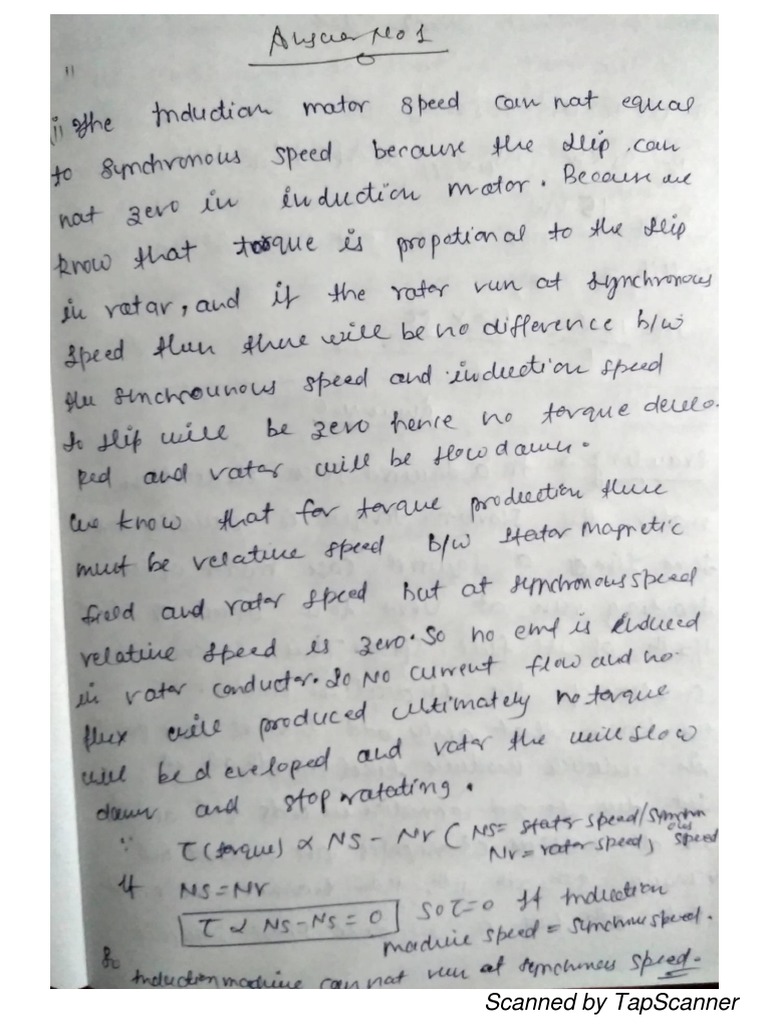 Answer No 1
"
(i) The Induction motor speed can not equal
to Synchronous speed because the slip can
not zero in induction motor. Because we
know that torque is propotional to the slip
in rotar, and if the rotar run at synchronous
speed then there will be no difference b/w
the sinchrounous speed and induction speed
so slip will be zero hence no torque develo-
ped and rotar will be slow down.
We know that for torque production there
must be relative speed b/w stator magnetic
field and rotar speed but at synchronous speed
relative speed is zero. So no emf is induced
in rotar conductor. So No current flow and no
flux will produced ultimately no torque
will be developed and rotar the will slow
down and stop rotating.
∵ τ (torque) ∝ NS - Nr ( NS = stator speed/synchronous
Nr = rotar speed, speed
If NS = Nr
τ ∝ NS - NS = 0 so τ = 0 If Induction
machine speed = synchronous speed.
So
Induction machine can not run at synchronous speed.
Scanned by TapScanner